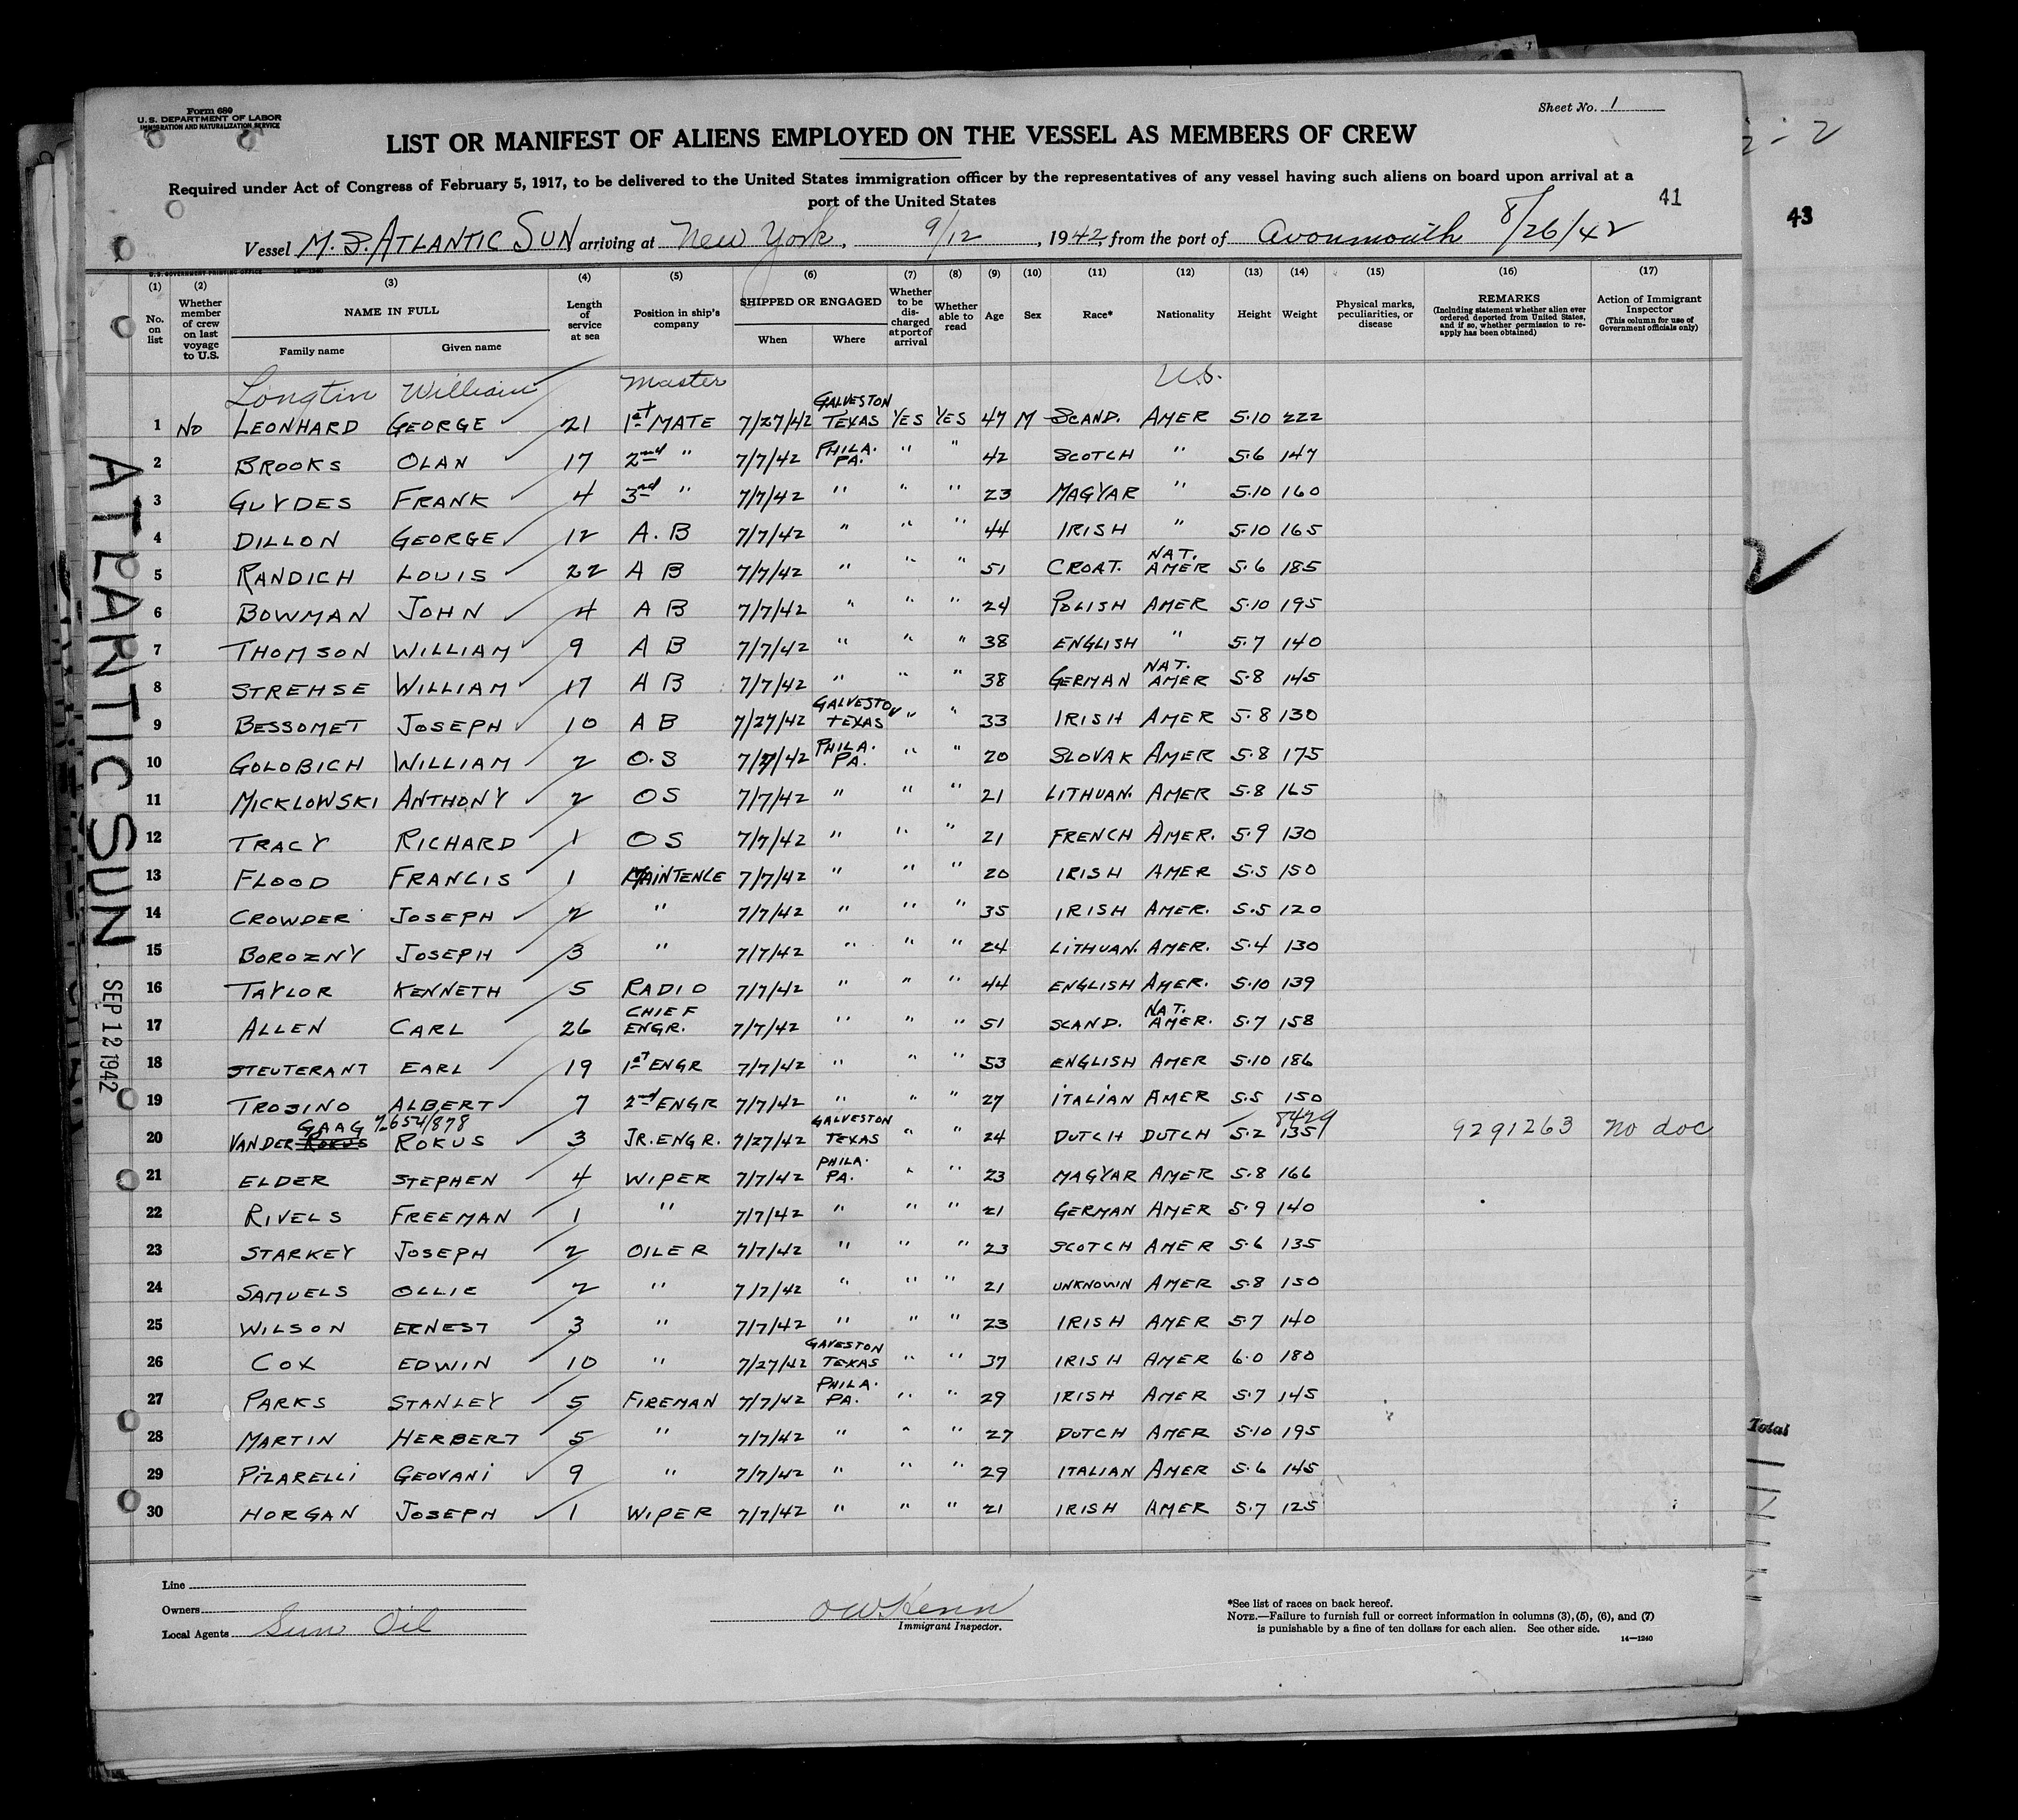 Form 680
U.S. DEPARTMENT OF LABOR
IMMIGRATION AND NATURALIZATION SERVICE
Sheet No. 1
LIST OR MANIFEST OF ALIENS EMPLOYED ON THE VESSEL AS MEMBERS OF CREW
Required under Act of Congress of February 5, 1917, to be delivered to the United States immigration officer by the representatives of any vessel having such aliens on board upon arrival at a
port of the United States
41
43
Vessel M.S. ATLANTIC SUN, arriving at New York, 9/12, 1942, from the port of Avonmouth 8/26/42
U.S. GOVERNMENT PRINTING OFFICE 14-1240
(1) (2) (3) (4) (5) (6) (7) (8) (9) (10) (11) (12) (13) (14) (15) (16) (17)
No. on list
Whether member of crew on last voyage to U.S.
NAME IN FULL
Family name Given name
Length of service at sea
Position in ship's company
SHIPPED OR ENGAGED
When Where
Whether to be discharged at port of arrival
Whether able to read
Age Sex Race* Nationality Height Weight
Physical marks, peculiarities, or disease
REMARKS
(Including statement whether alien ever ordered deported from United States, and if so, whether permission to reapply has been obtained)
Action of Immigrant Inspector
(This column for use of Government officials only)
Longtin William Master U.S.
1 No LEONHARD GEORGE 21 1st MATE 7/27/42 GALVESTON TEXAS YES YES 47 M SCAND. AMER 5.10 222
2 BROOKS OLAN 17 2nd " 7/7/42 PHILA. PA. " " 42 SCOTCH " 5.6 147
3 GUYDES FRANK 4 3rd " 7/7/42 " " " 23 MAGYAR " 5.10 160
4 DILLON GEORGE 12 A.B 7/7/42 " " " 44 IRISH " 5.10 165
5 RANDICH LOUIS 22 A B 7/7/42 " " " 51 CROAT. NAT. AMER 5.6 185
6 BOWMAN JOHN 4 A B 7/7/42 " " " 24 POLISH AMER 5.10 195
7 THOMSON WILLIAM 9 A B 7/7/42 " " " 38 ENGLISH " 5.7 140
8 STREHSE WILLIAM 17 A B 7/7/42 " " " 38 GERMAN NAT. AMER 5.8 145
9 BESSOMET JOSEPH 10 A B 7/27/42 GALVESTON TEXAS " " 33 IRISH AMER 5.8 130
10 GOLOBICH WILLIAM 2 O.S 7/7/42 PHILA. PA. " " 20 SLOVAK AMER 5.8 175
11 MICKLOWSKI ANTHONY 2 OS 7/7/42 " " " 21 LITHUAN. AMER 5.8 165
12 TRACY RICHARD 1 OS 7/7/42 " " " 21 FRENCH AMER. 5.9 130
13 FLOOD FRANCIS 1 MAINTENCE 7/7/42 " " " 20 IRISH AMER 5.5 150
14 CROWDER JOSEPH 2 " 7/7/42 " " " 35 IRISH AMER. 5.5 120
15 BOROZNY JOSEPH 3 " 7/7/42 " " " 24 LITHUAN. AMER. 5.4 130
16 TAYLOR KENNETH 5 RADIO 7/7/42 " " " 44 ENGLISH AMER. 5.10 139
17 ALLEN CARL 26 CHIEF ENGR. 7/7/42 " " " 51 SCAND. NAT. AMER. 5.7 158
18 STEUTERANT EARL 19 1st ENGR 7/7/42 " " " 53 ENGLISH AMER 5.10 186
19 TROSINO ALBERT 7 2nd ENGR 7/7/42 " " " 27 ITALIAN AMER 5.5 150
GAAG 7-654/878 8429
20 VAN DER ROKUS ROKUS 3 JR. ENGR. 7/27/42 GALVESTON TEXAS " " 24 DUTCH DUTCH 5.2 135 9291263 no doc
21 ELDER STEPHEN 4 WIPER 7/7/42 PHILA. PA. " " 23 MAGYAR AMER 5.8 166
22 RIVELS FREEMAN 1 " 7/7/42 " " " 21 GERMAN AMER 5.9 140
23 STARKEY JOSEPH 2 OILER 7/7/42 " " " 23 SCOTCH AMER 5.6 135
24 SAMUELS OLLIE 2 " 7/7/42 " " " 21 UNKNOWN AMER 5.8 150
25 WILSON ERNEST 3 " 7/7/42 " " " 23 IRISH AMER 5.7 140
26 COX EDWIN 10 " 7/27/42 GAVESTON TEXAS " " 37 IRISH AMER 6.0 180
27 PARKS STANLEY 5 FIREMAN 7/7/42 PHILA. PA. " " 29 IRISH AMER 5.7 145
28 MARTIN HERBERT 5 " 7/7/42 " " " 27 DUTCH AMER 5.10 195
29 PIZARELLI GEOVANI 9 " 7/7/42 " " " 29 ITALIAN AMER 5.6 145
30 HORGAN JOSEPH 1 WIPER 7/7/42 " " " 21 IRISH AMER 5.7 125
ATLANTIC SUN
SEP 12 1942
Total
Line
Owners
Local Agents Sun Oil
Immigrant Inspector.
*See list of races on back hereof.
NOTE.—Failure to furnish full or correct information in columns (3), (5), (6), and (7)
is punishable by a fine of ten dollars for each alien. See other side.
14—1240